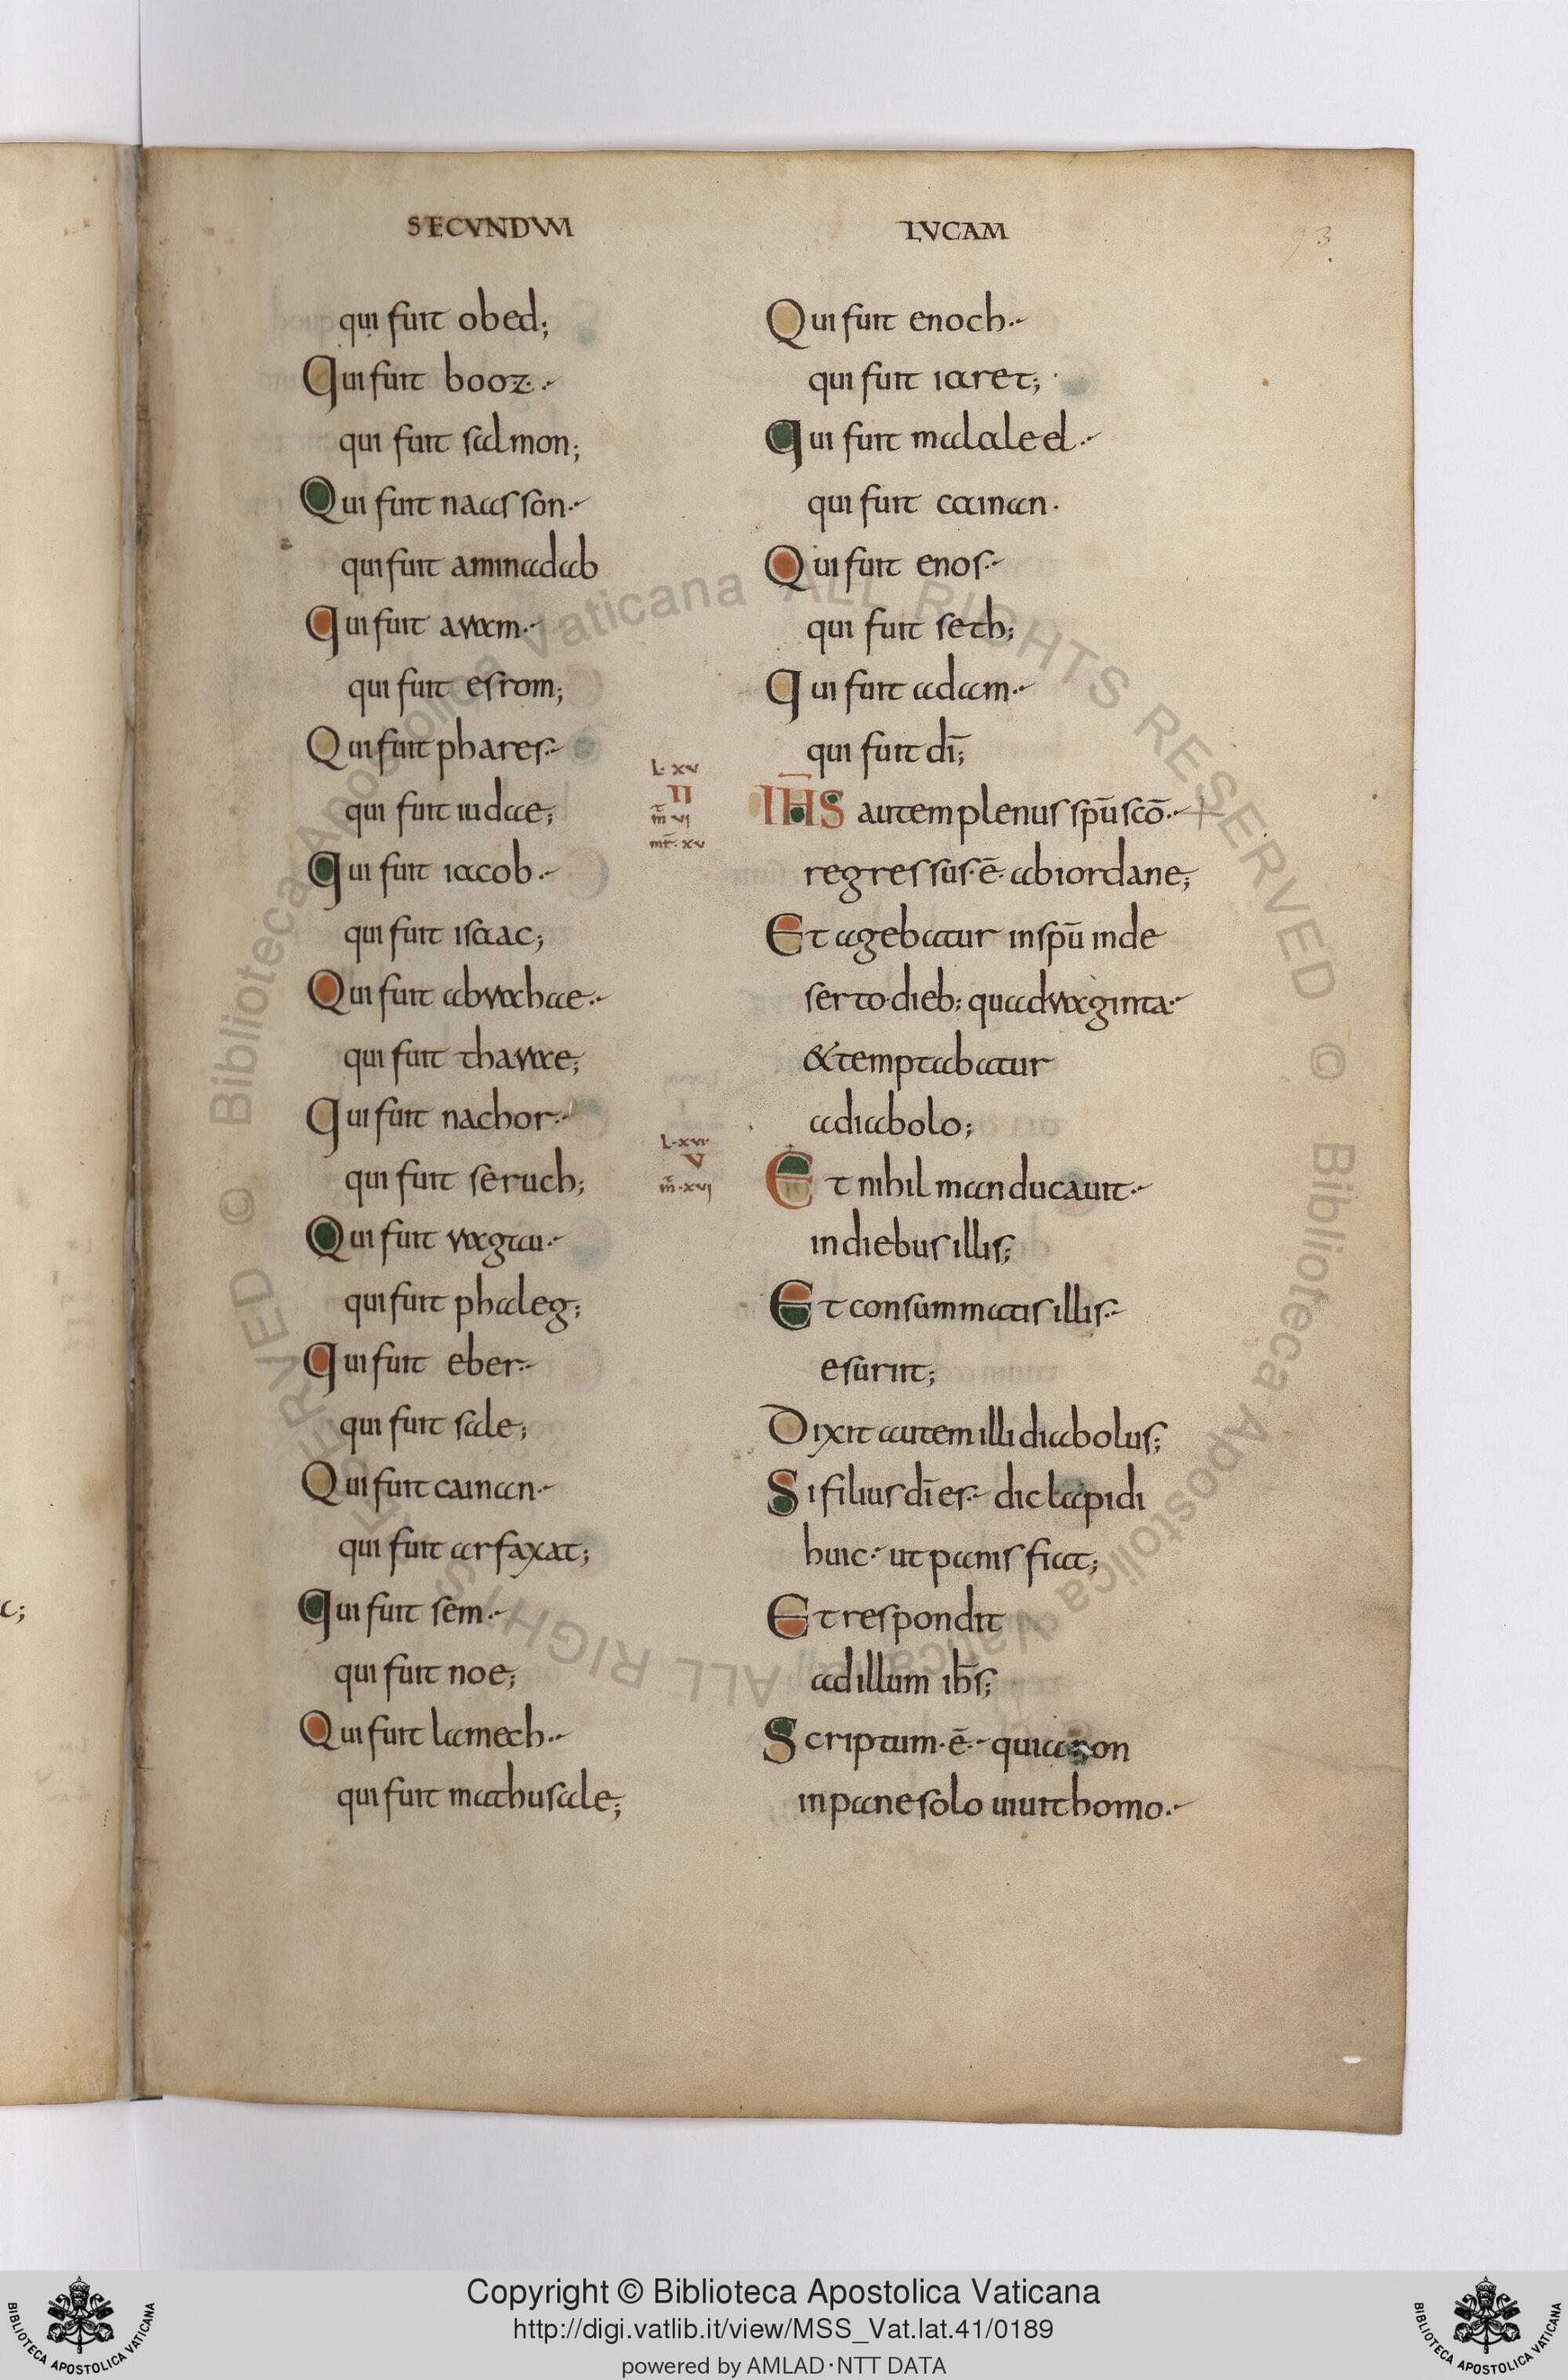 SECVNDVM
qui fuit obed;
Qui fuit booz.
qui fuit salmon;
Qui fuit naasson.
qui fuit aminadab
Qui fuit aram.
qui fuit esrom;
Qui fuit phares.
qui fuit iudae;
Qui fuit iacob.
qui fuit isaac;
Qui fuit abrahae.
qui fuit tharae;
Qui fuit nachor.
qui fuit seruch;
Qui fuit ragau.
qui fuit phaleg;
Qui fuit eber.
qui fuit sale;
Qui fuit cainan.
qui fuit arfaxat;
Qui fuit sem.
qui fuit noe;
Qui fuit lamech.
qui fuit mathusale;
LUCAM
Qui fuit enoch.
qui fuit iaret;
Qui fuit malaleel.
qui fuit cainan.
Qui fuit enos.
qui fuit seth;
Qui fuit adam.
qui fuit dī;
L. xv
II
m̄ vi
mr̄. xv
IHS autem plenus spū scō.
regressus ē ab iordane;
Et agebatur in spū in de
serto dieb: quadraginta.
& temptabatur
a diabolo;
L. xvi
V
m̄. xvi
Et nihil manducauit.
in diebus illis;
Et consummatis illis.
esurit;
Dixit autem illi diabolus;
Si filius dī es. dic lapidi
huic. ut panis fiat;
Et respondit
ad illum ihs̄;
Scriptum. ē. quia non
in pane solo uiuit homo.
Copyright © Biblioteca Apostolica Vaticana
http://digi.vatlib.it/view/MSS_Vat.lat.41/0189
powered by AMLAD·NTT DATA
BIBLIOTECA APOSTOLICA VATICANA
BIBLIOTECA APOSTOLICA VATICANA
© Biblioteca Apostolica Vaticana ALL RIGHTS RESERVED © Biblioteca Apostolica Vaticana ALL RIGHTS RESERVED